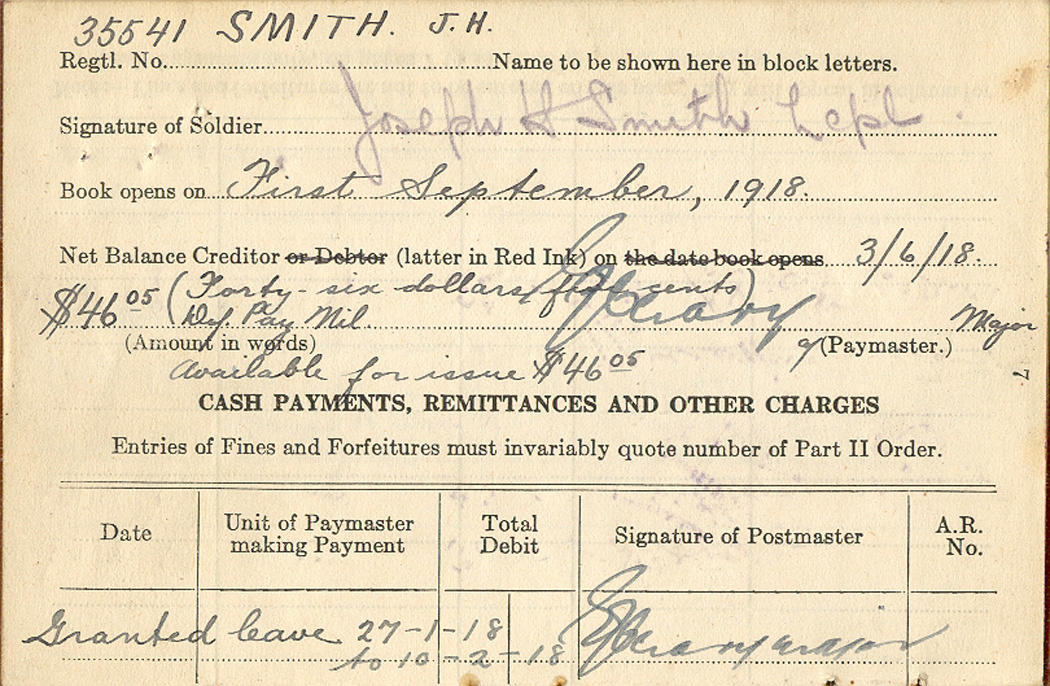 35541 SMITH. J. H.
Regtl. No. Name to be shown here in block letters.
Signature of Soldier Joseph H Smith Lcpl.
Book opens on First September, 1918.
Net Balance Creditor or Debtor (latter in Red Ink) on the date book opens 3/6/18.
$46 05 (Forty-six dollars, five cents)
Def. Pay Nil. Major
(Amount in words) (Paymaster.)
Available for issue $46 05
CASH PAYMENTS, REMITTANCES AND OTHER CHARGES
Entries of Fines and Forfeitures must invariably quote number of Part II Order.
Date Unit of Paymaster making Payment Total Debit Signature of Postmaster A.R. No.
Granted leave 27-1-18
to 10-2-18